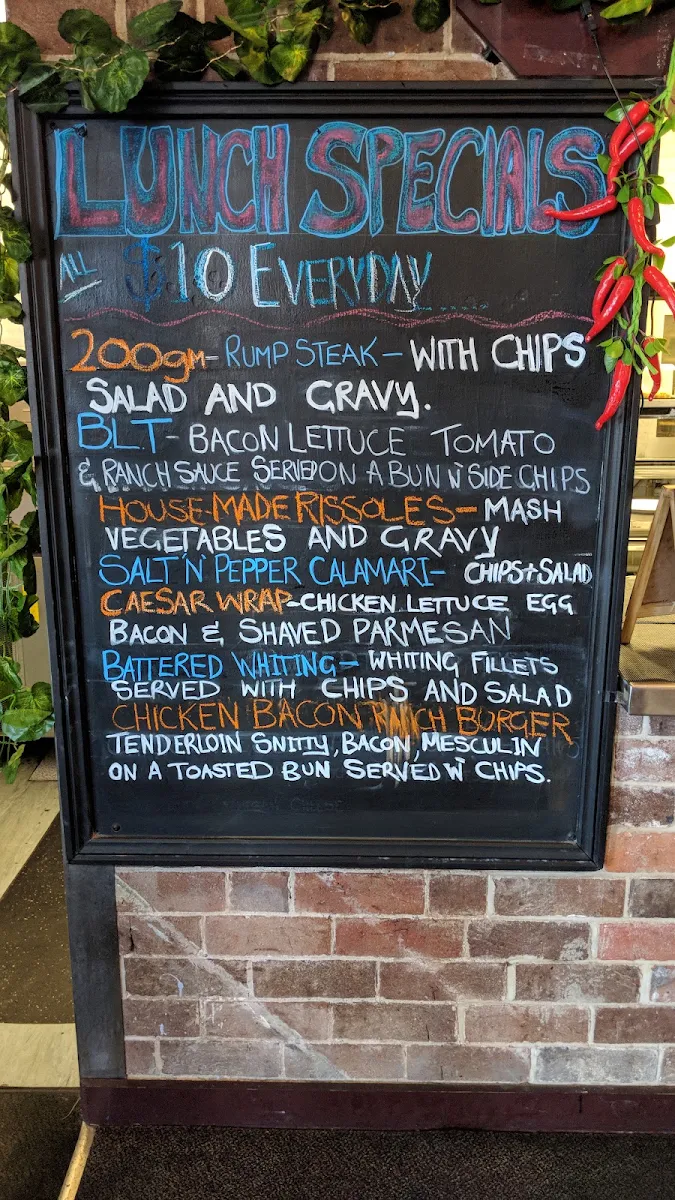 LUNCH SPECIALS
ALL $10 EVERYDAY
200gm- RUMP STEAK - WITH CHIPS
SALAD AND GRAVY.
BLT - BACON LETTUCE TOMATO
& RANCH SAUCE SERVED ON A BUN W SIDE CHIPS
HOUSE-MADE RISSOLES - MASH
VEGETABLES AND GRAVY
SALT N' PEPPER CALAMARI - CHIPS + SALAD
CAESAR WRAP - CHICKEN LETTUCE EGG
BACON & SHAVED PARMESAN
BATTERED WHITING - WHITING FILLETS
SERVED WITH CHIPS AND SALAD
CHICKEN BACON RANCH BURGER
TENDERLOIN SNITTY, BACON, MESCULIN
ON A TOASTED BUN SERVED W CHIPS.